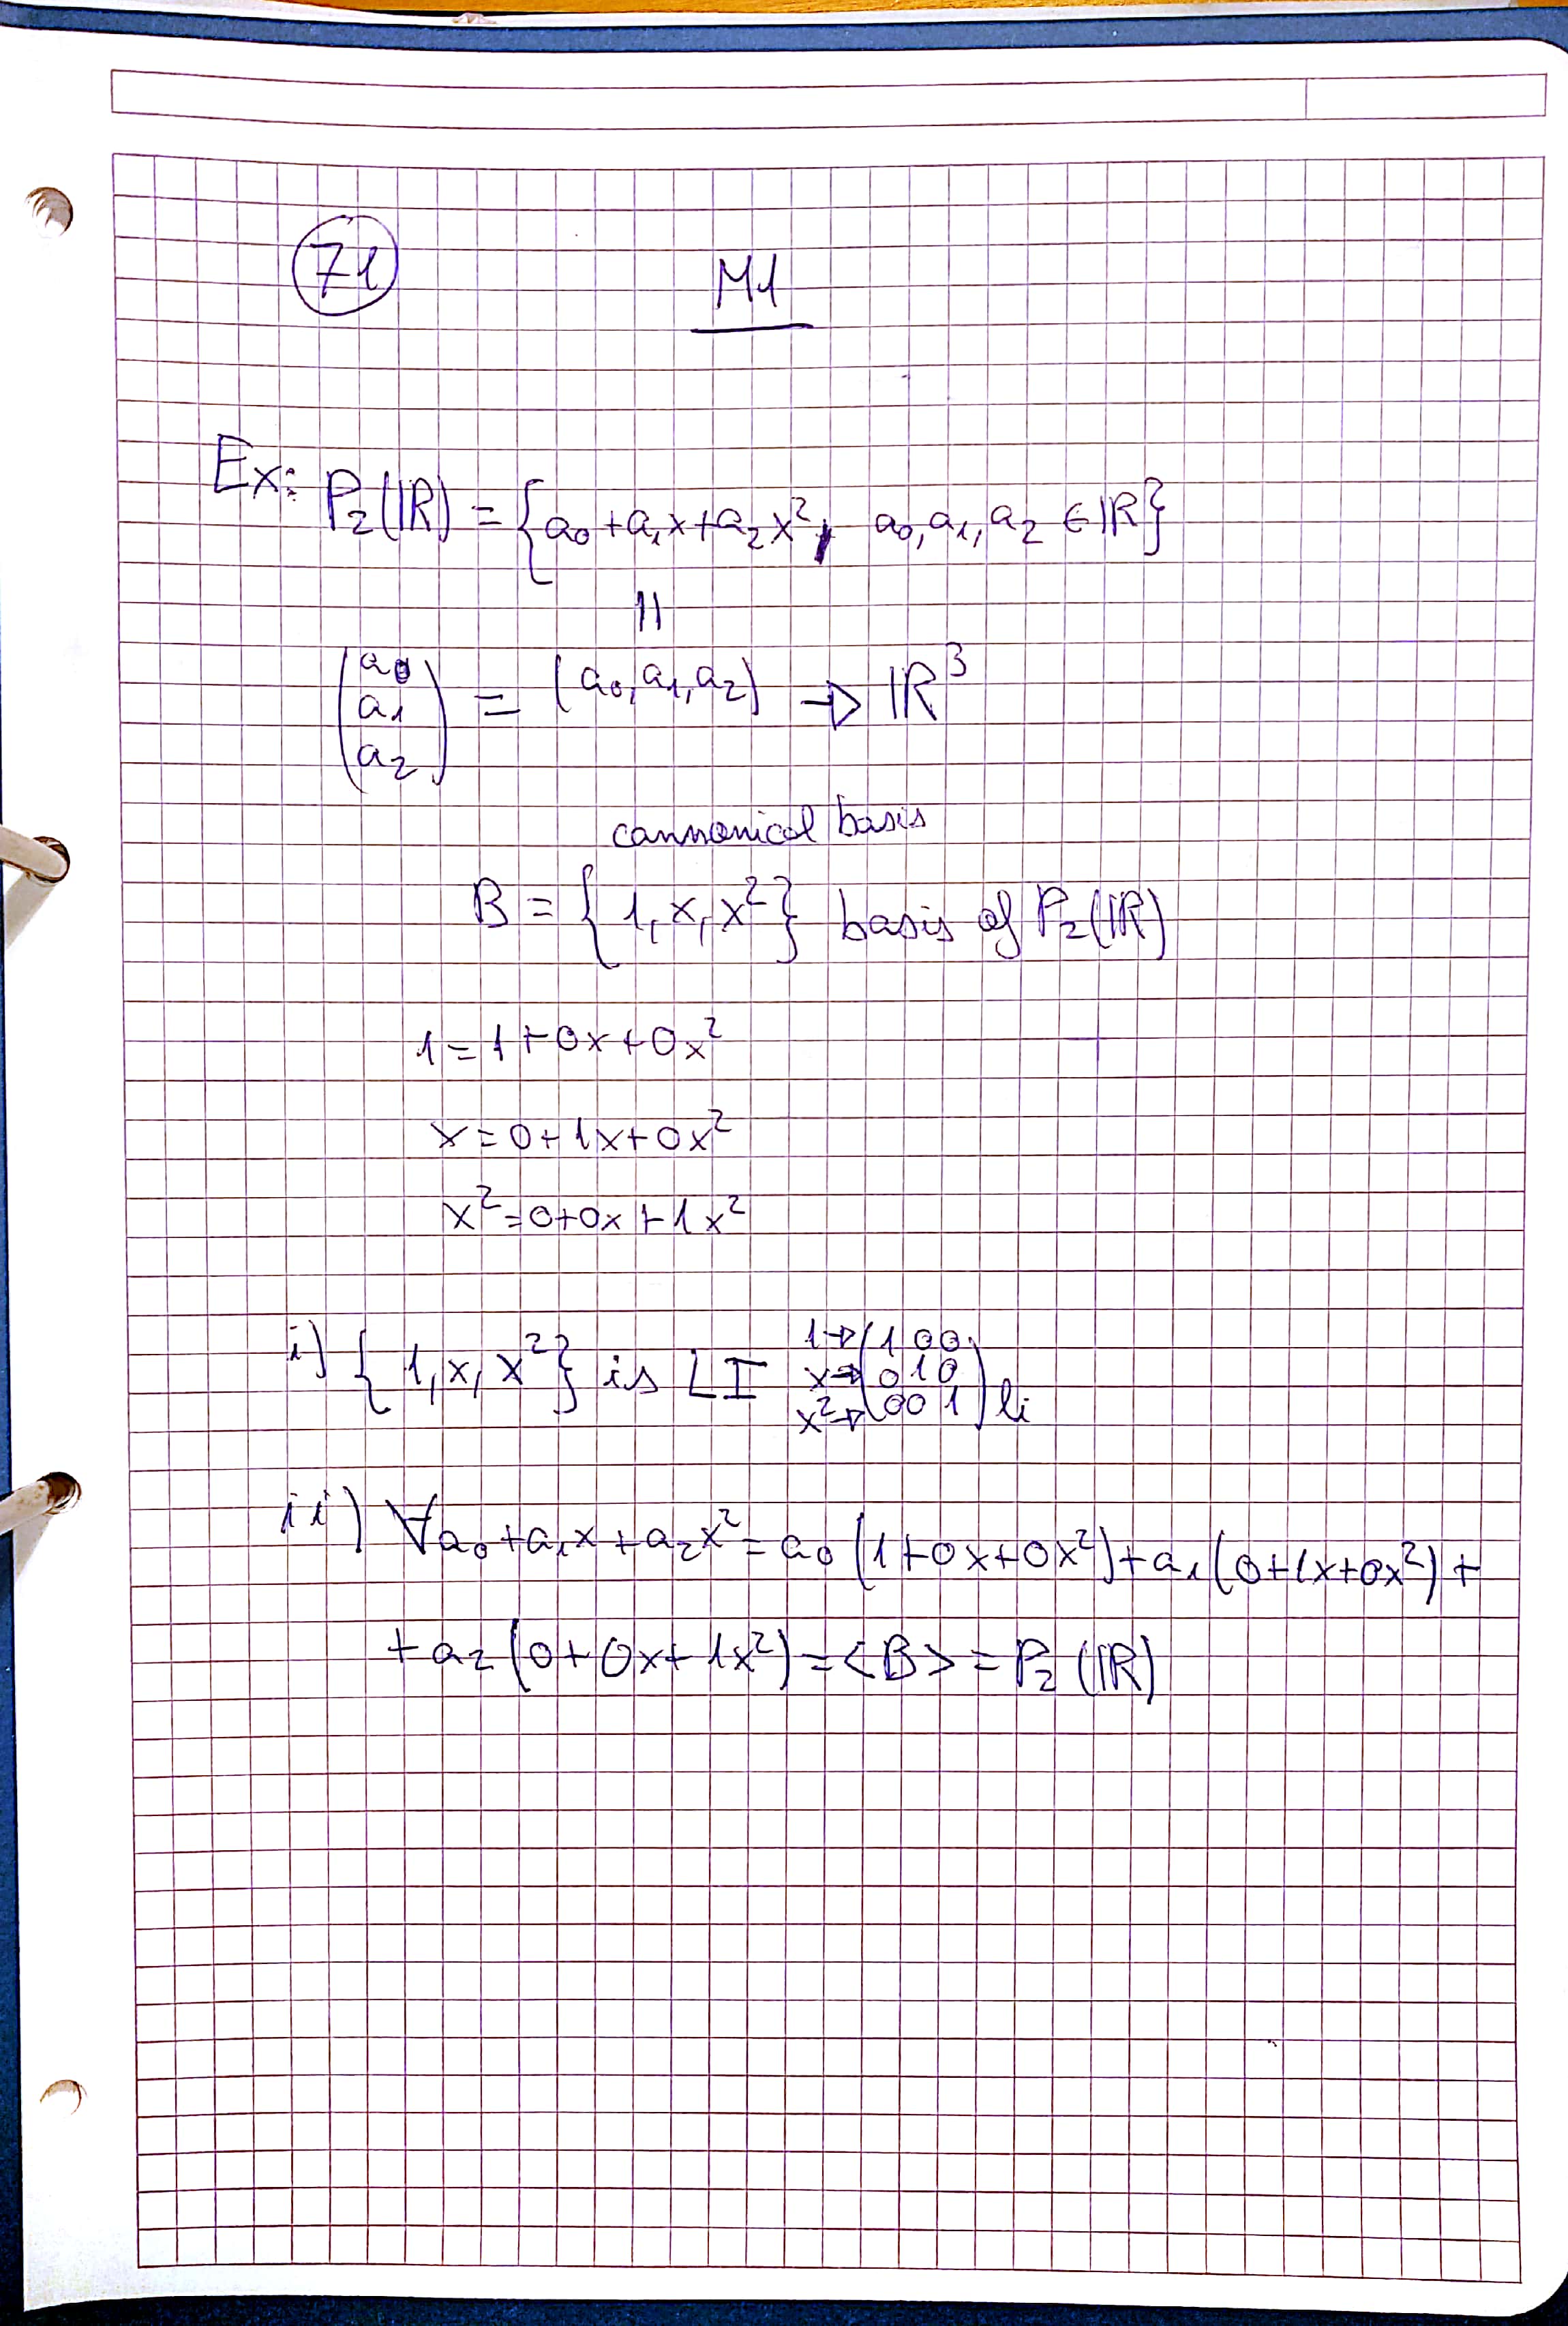 71
M1
Ex: P₂(ℝ) = {a₀+a₁x+a₂x², a₀,a₁,a₂ ∈ ℝ}
||
(a₀ a₁ a₂) = (a₀,a₁,a₂) → ℝ³
cannonical basis
B = {1,x,x²} basis of P₂(ℝ)
1=1+0x+0x²
x=0+1x+0x²
x²=0+0x+1x²
i) {1,x,x²} is LI 1→(1 0 0
x→ 0 1 0
x²→ 0 0 1) li
ii) ∀a₀+a₁x+a₂x²=a₀(1+0x+0x²)+a₁(0+1x+0x²)+
+a₂(0+0x+1x²)=<B>=P₂(ℝ)